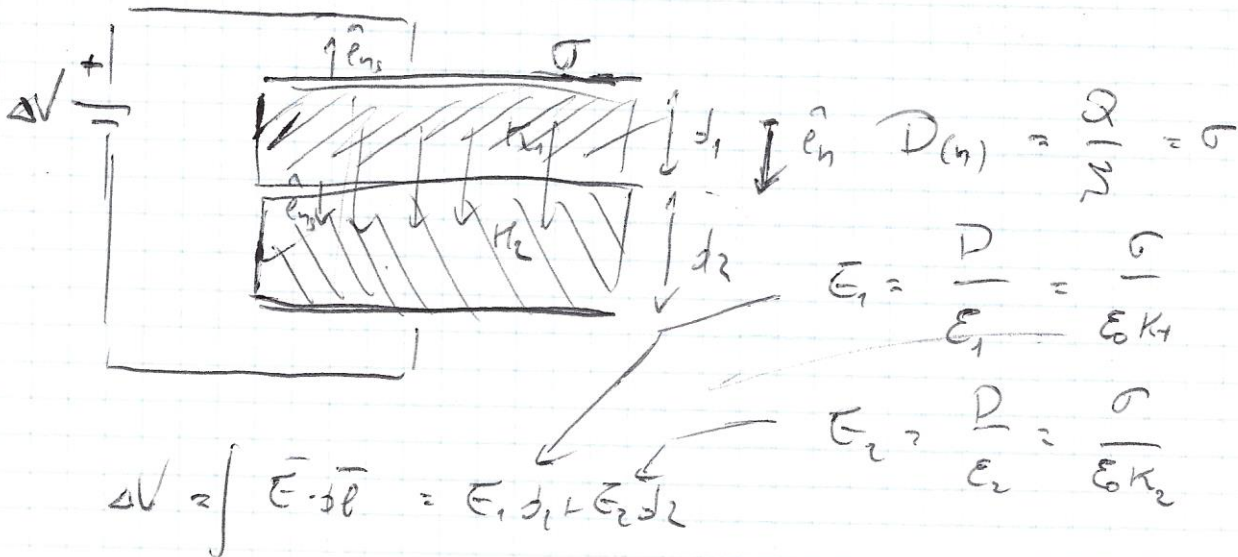 ΔV + ê_n₃ σ
κ₁ d₁ ê_n D_(n) = Q/S = σ
ê_n₃ κ₂ d₂
E₁ = D/ε₁ = σ/(ε₀ κ₁)
E₂ = D/ε₂ = σ/(ε₀ κ₂)
ΔV = ∫ E̅ · d̅l̅ = E₁ d₁ + E₂ d₂